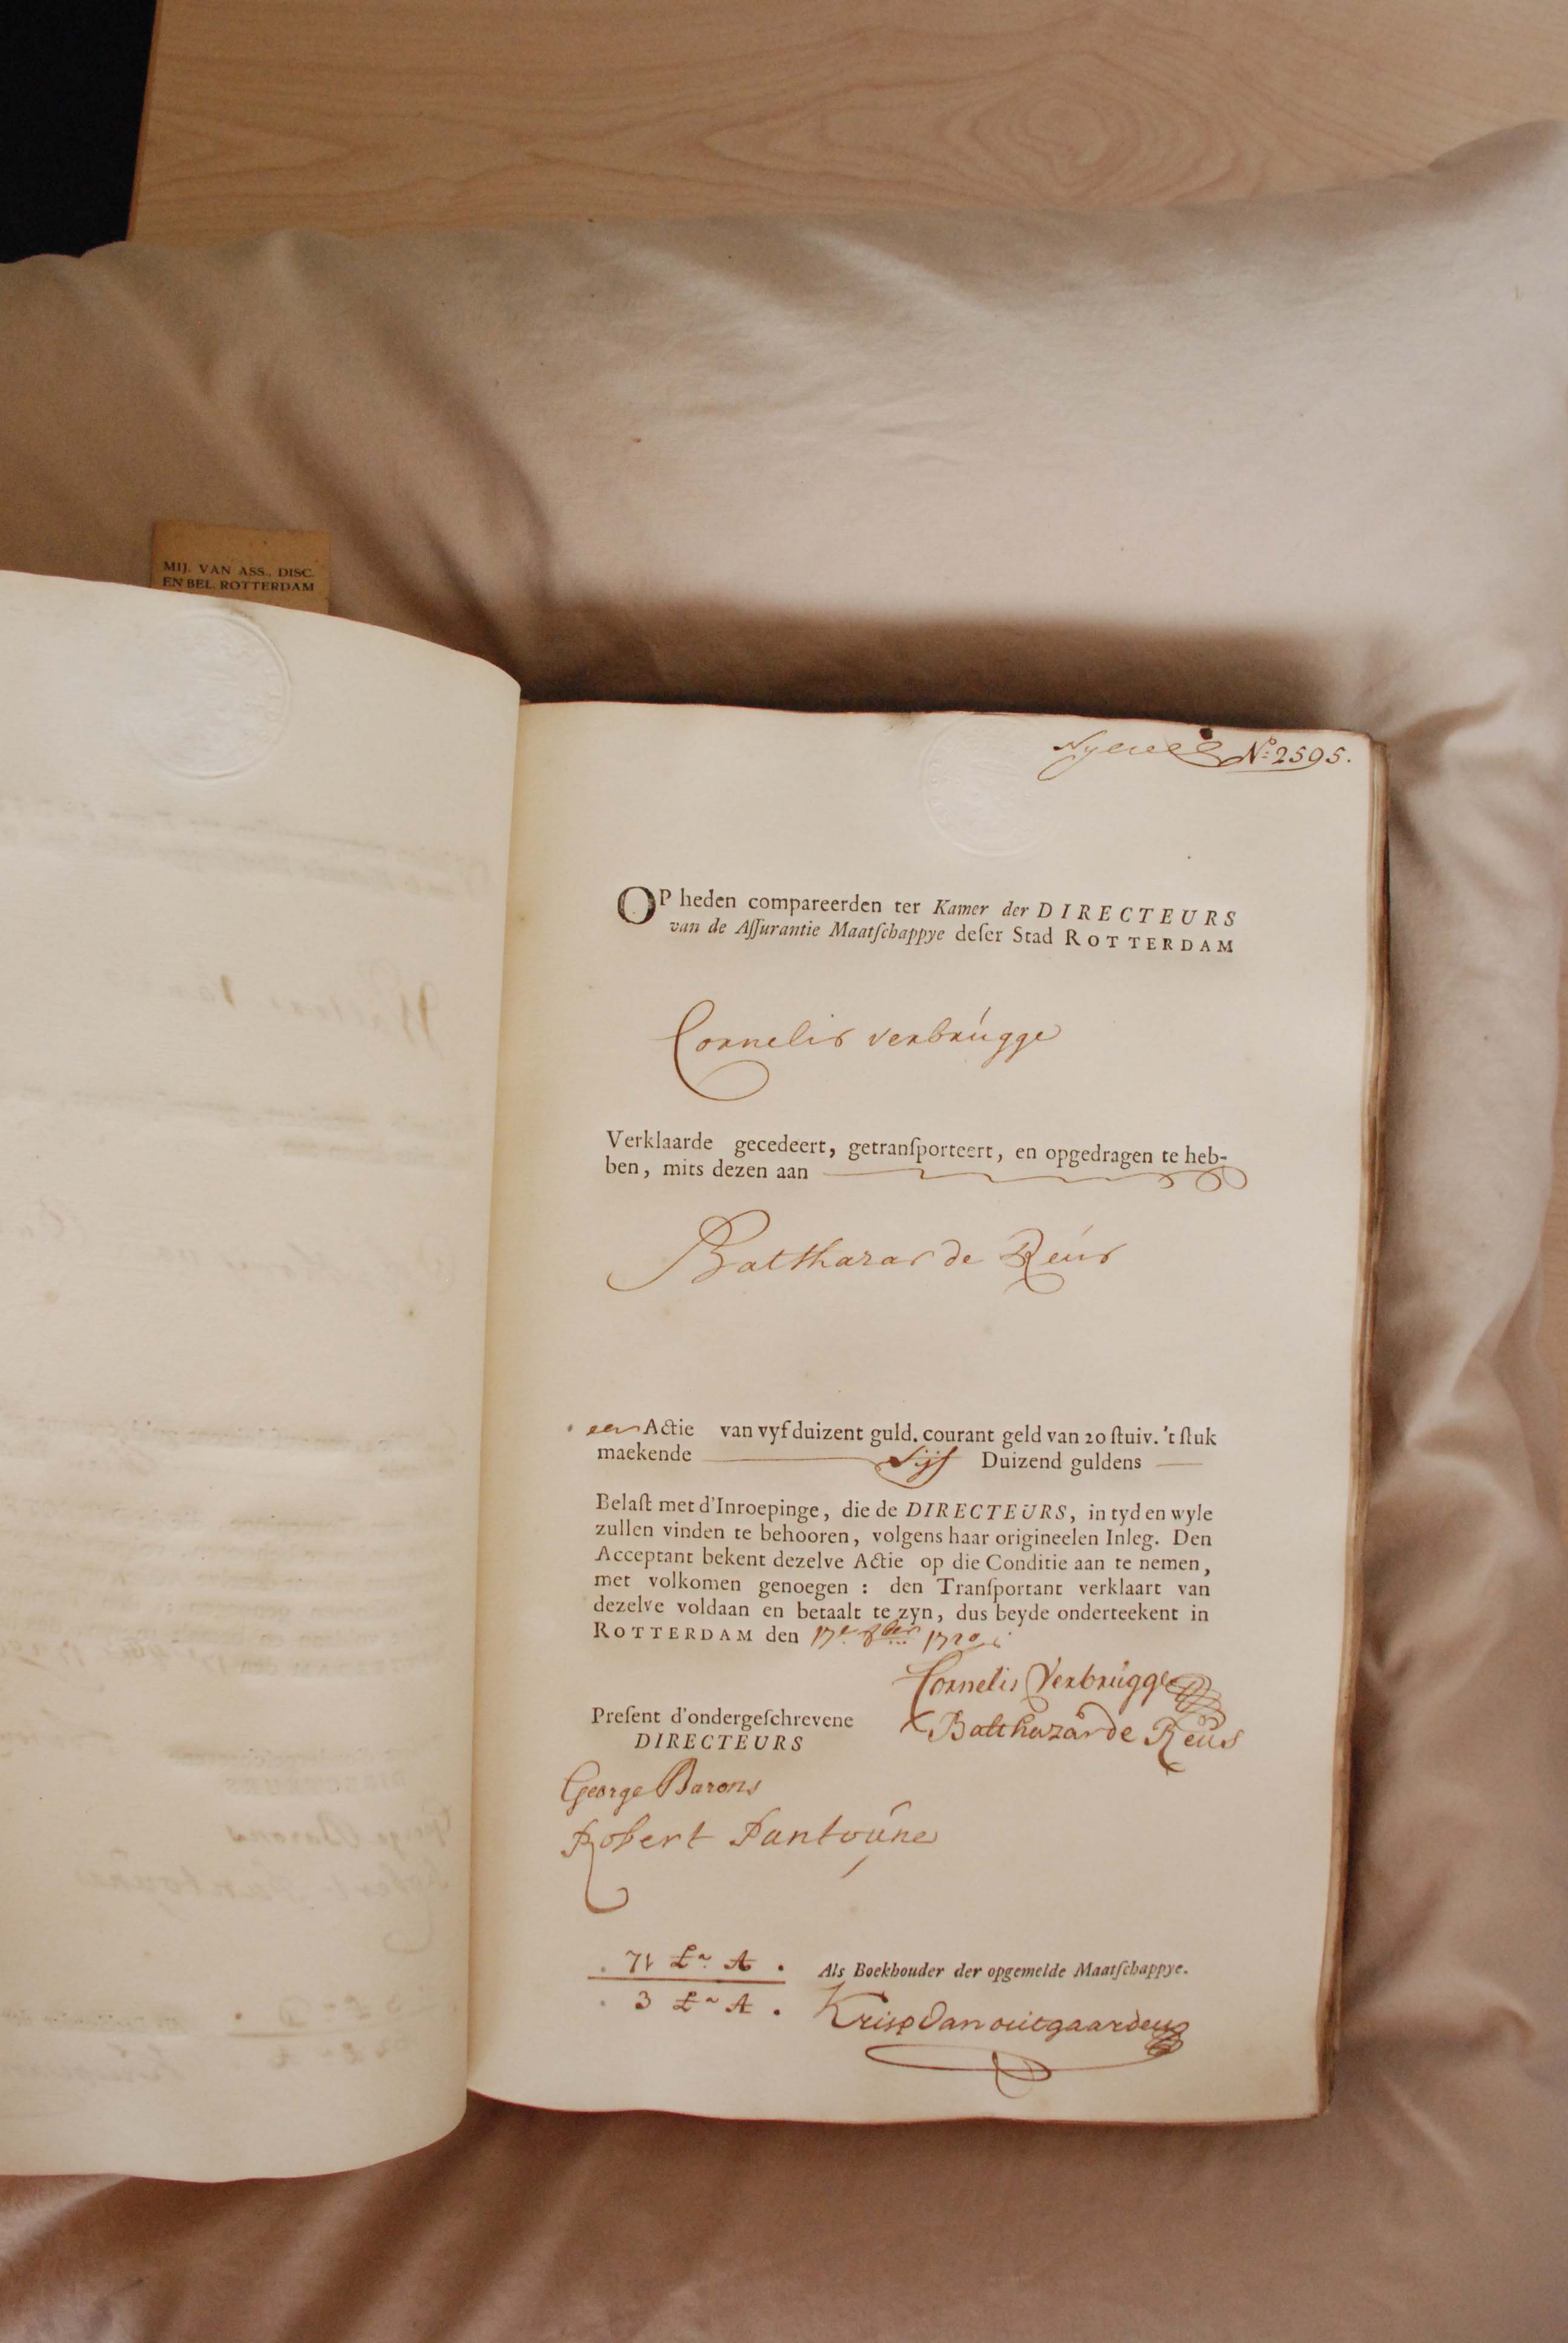 MIJ. VAN ASS., DISC.
EN BEL. ROTTERDAM
No: 2595.
OP heden compareerden ter Kamer der DIRECTEURS
van de Aſſurantie Maatſchappye deſer Stad ROTTERDAM
Cornelis verbrúgge
Verklaarde gecedeert, getranſporteert, en opgedragen te heb-
ben, mits dezen aan
Balthazar de Reús
een Actie van vyf duizent guld. courant geld van 20 ſtuiv. 't ſtuk
maekende Vijf Duizend guldens
Belaſt met d'Inroepinge, die de DIRECTEURS, in tyd en wyle
zullen vinden te behooren, volgens haar origineelen Inleg. Den
Acceptant bekent dezelve Actie op die Conditie aan te nemen,
met volkomen genoegen : den Tranſportant verklaart van
dezelve voldaan en betaalt te zyn, dus beyde onderteekent in
ROTTERDAM den 17e 8ber 1720
Cornelis Verbrúgge
Preſent d'ondergeſchrevene
Balthazar de Reús
DIRECTEURS
George Barons
Robert Pantoúne
71 La A. Als Boekhouder der opgemelde Maatſchappye.
3 La A. Krisp Van outgaarden